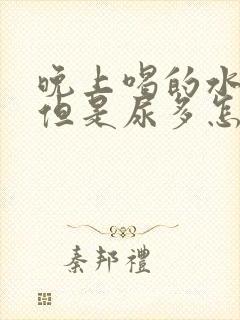 晚上喝的水
但是尿多怎
秦邦禮